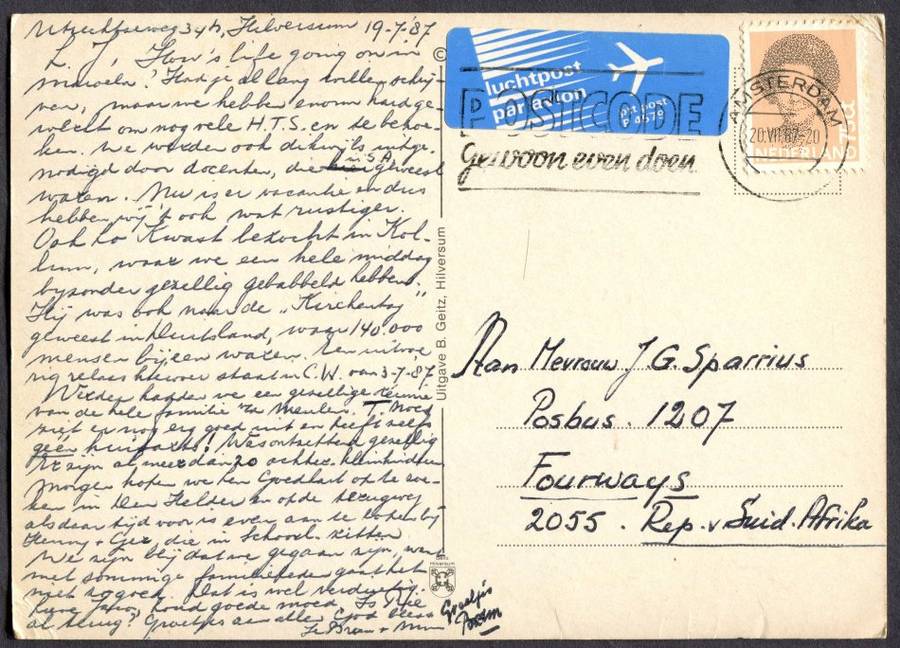 Utrechtseweg 34h, Hilversum 19-7-'87
L. J, How's life going on in
? Had je al lang willen schrij-
ven, maar we hebben enorm hard ge-
werkt om nog vele H.T.S. en te bezoe-
ken. We werden ook dikwijls uitge-
in S.A.
nodigd door docenten, die geweest
waren. Nu is er vacantie en dus
hebben wij 't ook wat rustiger.
Ook Ko Kwast bezocht in Kol-
lum, waar we een hele middag
byzonder gezellig gebabbeld hebben.
Hij was ook naar de "Kirchentag"
geweest in Duitsland, waar 140.000
mensen bijeen waren. Een uitvoe-
rig relaas hierover staat in C.W. van 3-7-'87
Verder hadden we een gezellige reunie
van de hele familie v.d. Meulen. T.
ziet er nog erg goed uit en heeft zelfs
géén ! Was ontzettend gezellig
Er zijn al meer dan 20 achter-kleinkinderen
Morgen hopen we ten Goedhart op te zoe-
ken in Den Helder en op de terugweg
als daar tijd voor is even aan te by
Henny + Ger, die in Schoorl zitten
We zijn blij dat we gegaan zijn, want
met sommige familieleden gaat het
niet zo goed. Dat is wel verdrietig.
houd goede moed. Is
al terug? Groetjes aan allen God bless
Le Bram +
Groetjes
Bram
©
Uitgave B. Geitz, Hilversum
Hilversum
luchtpost
par avion
ptt post
P 4579
POSTCODE
gewoon even doen
AMSTERDAM
20.VII.87-20
75c
NEDERLAND
Aan Mevrouw J G. Sparrius
Posbus. 1207
Fourways
2055. Rep. v Suid. Afrika